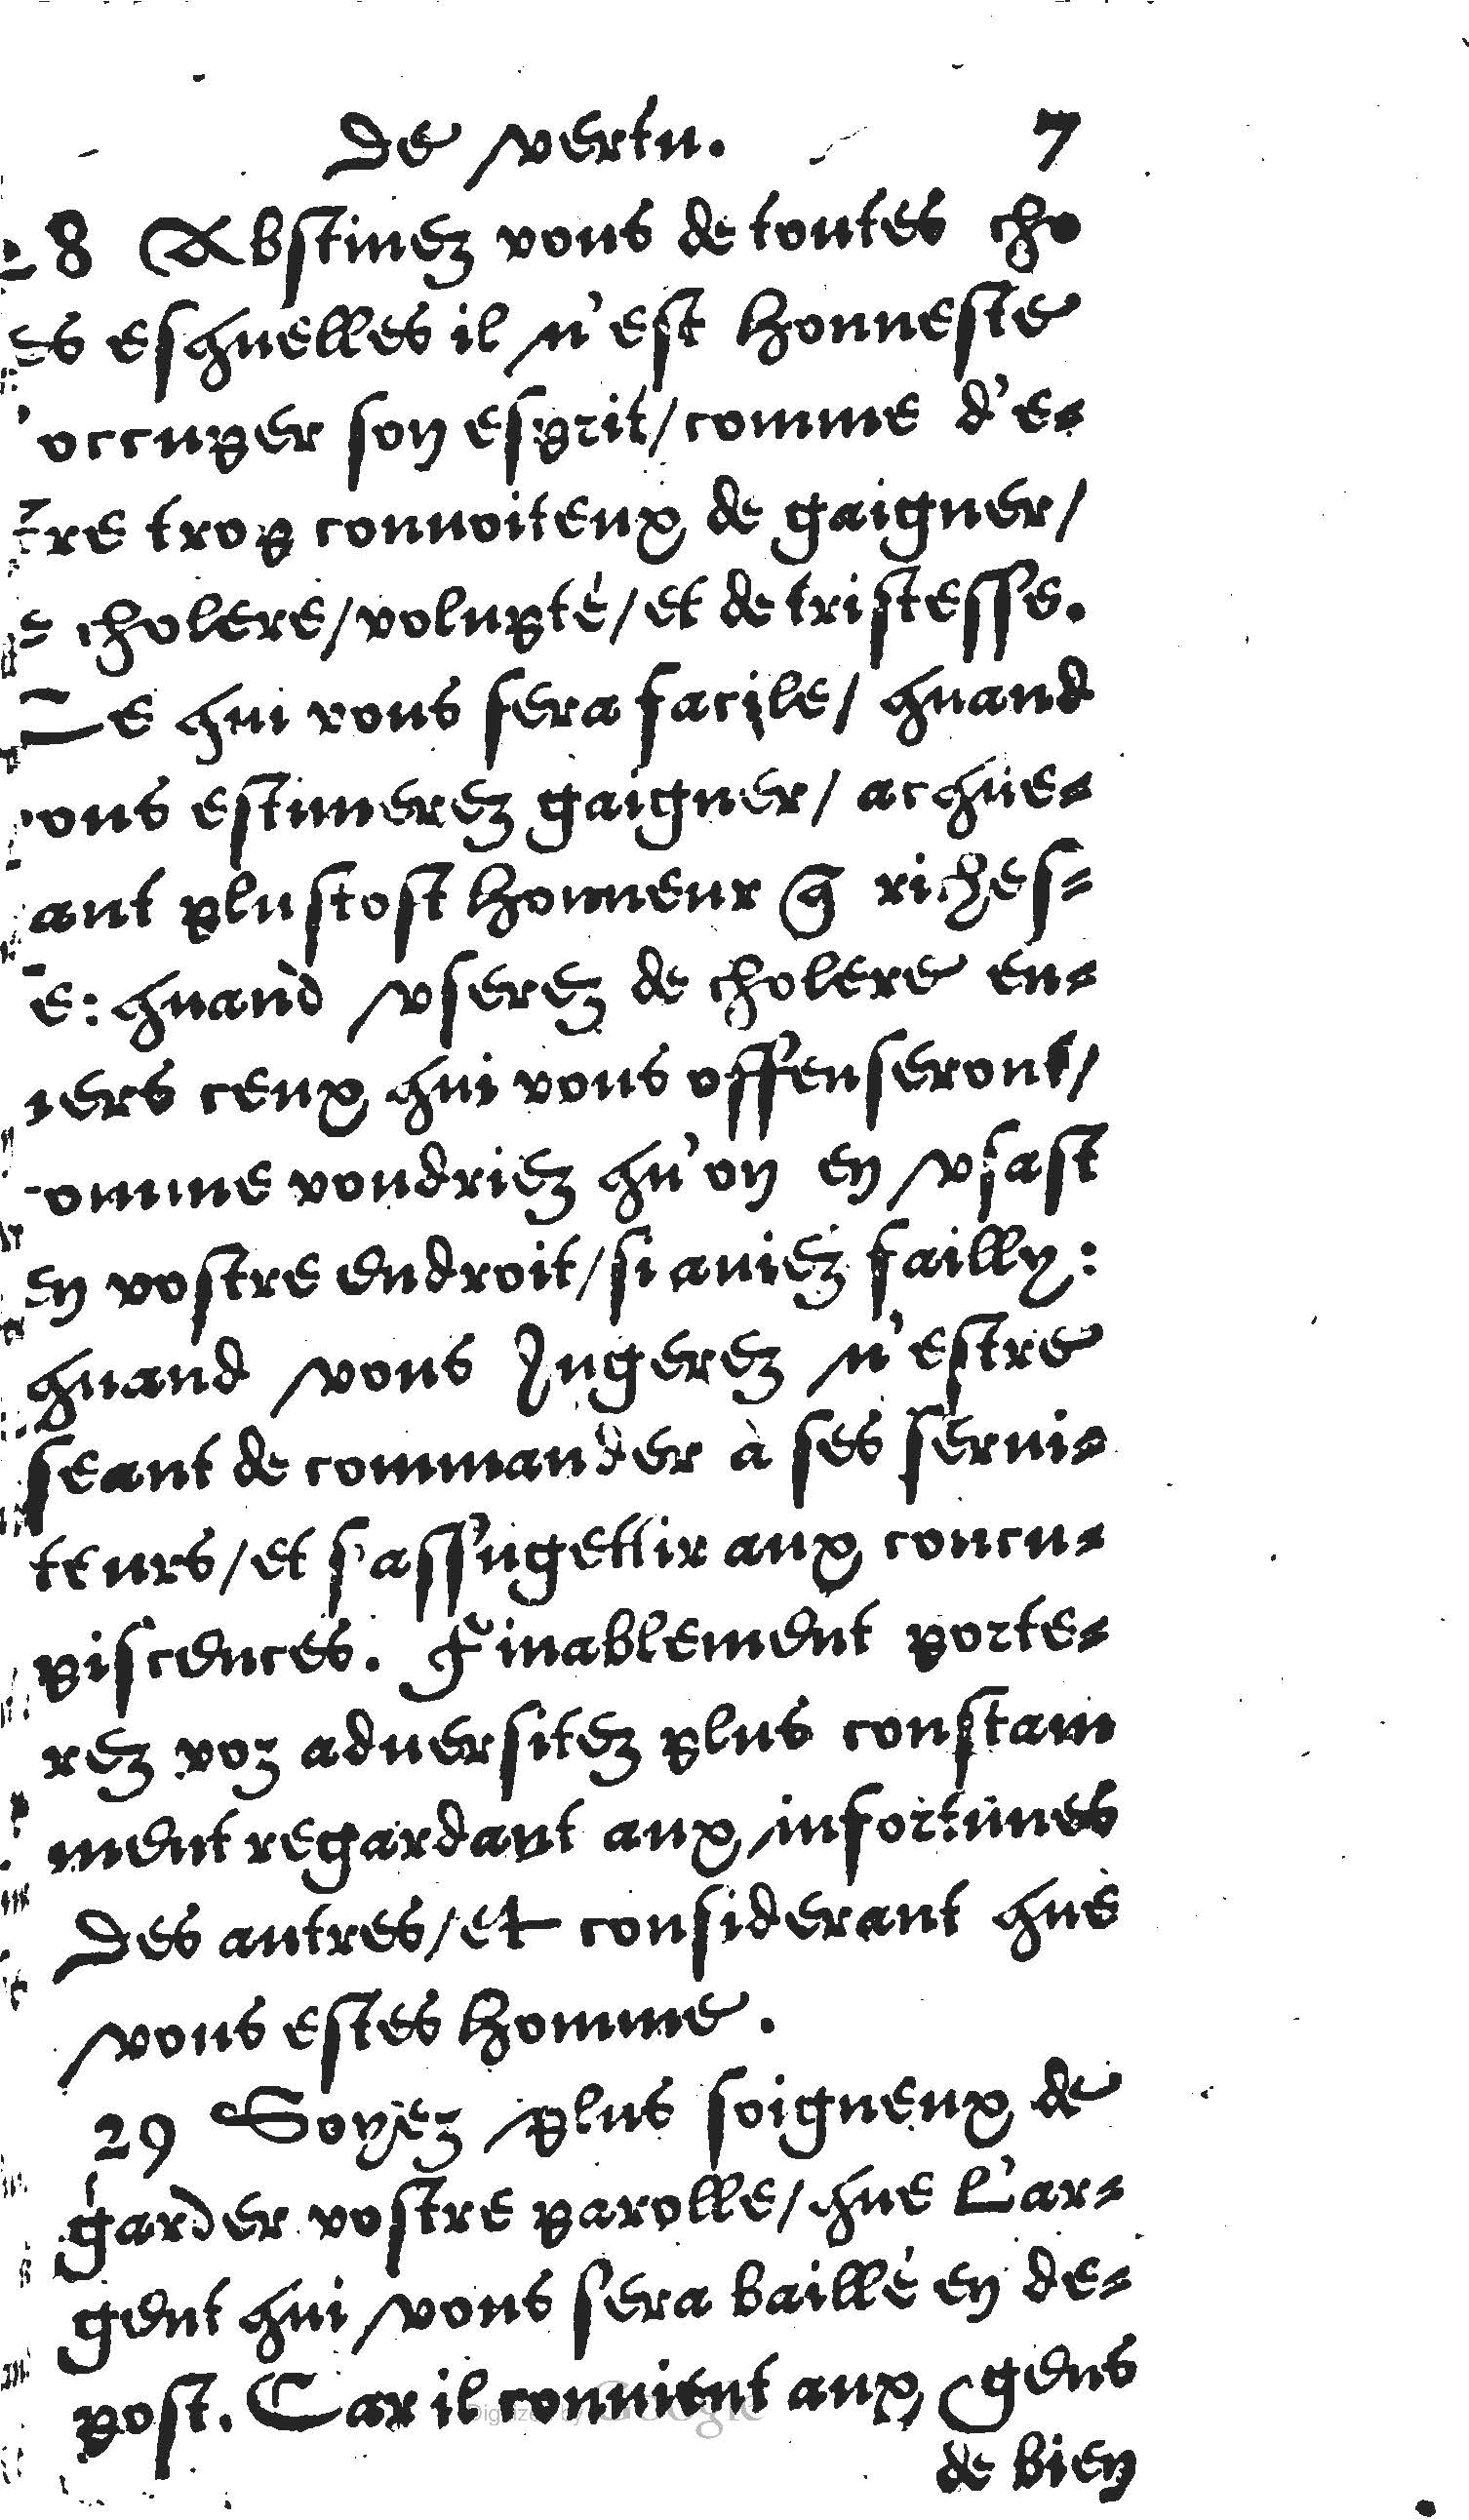 de vertu. 7
28 Abstinez vous de toutes cho
es esquelles il n'est honneste
'occuper son esprit/comme d'e-
tre trop conuoiteux de gaigner/
e cholere/volupté/et de tristesse.
Ce qui vous sera facile/quand
vous estimerez gaigner/acque-
ant plustost honneur q̃ riches-
e: quand vserez de cholere en-
uers ceux qui vous offenseront/
omme voudriez qu'on en vsast
en vostre endroit/si auiez failly:
quand vous Iugerez n'estre
seant de commander à ses serui-
teurs/et s'assugettir aux concu-
piscences. Finablement porte-
rez voz aduersitez plus constam
ment regardant aux infortunes
des autres/et considerant que
vous estes homme.
29 Soyez plus soigneux de
garder vostre parolle/que l'ar-
gent qui vous sera baillé en de-
post. Car il conuient aux gens
de bien
Digitized by Google